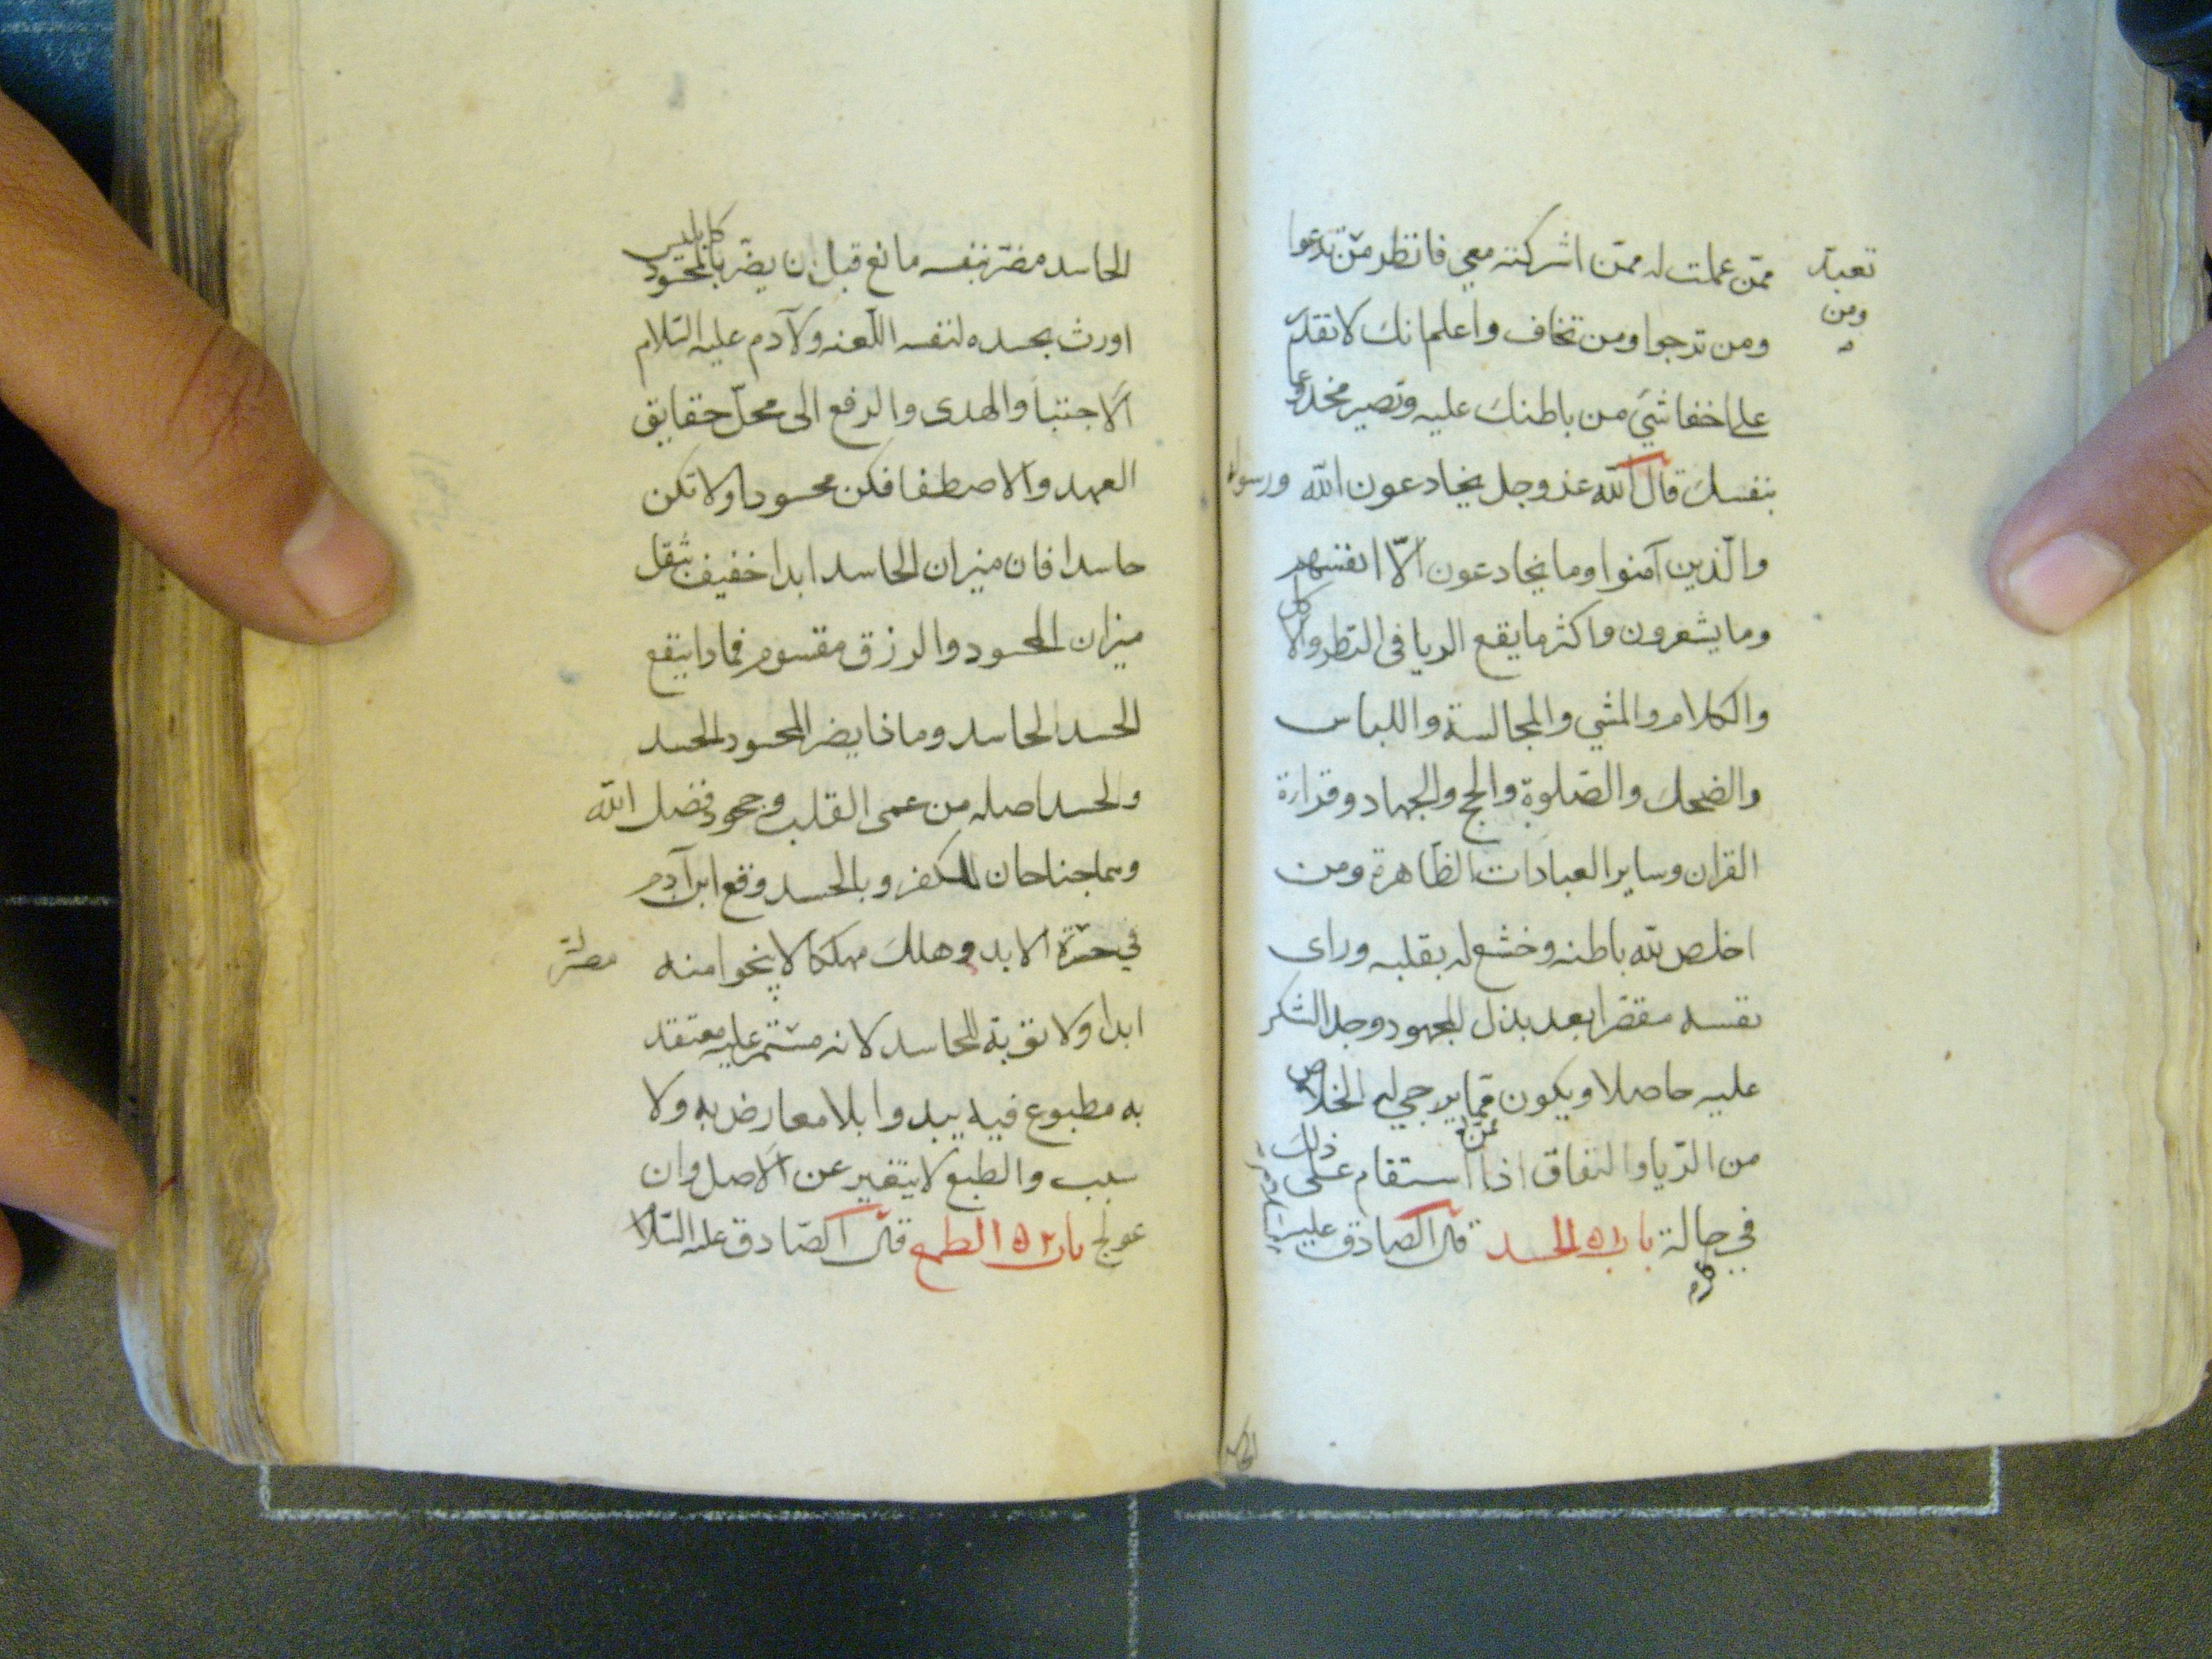 ممّن عملت له ممّن اشركته معي فانظر من تدعوا
تعبد
ومن
ومن ترجوا ومن تخاف واعلم انك لا تقدر
على اخفا شئ من باطنك عليه وتصير مخدوعا
بنفسك قال الله عز وجل يخادعون الله ورسوله
والّذين آمنوا وما يخادعون الّا انفسهم
وما يشعرون واكثر ما يقع الريا فى النظر والاكل
والكلام والمشي والمجالسة واللباس
والضحك والصّلوة والحج والجهاد وقراءة
القران وساير العبادات الظاهرة ومن
اخلص لله باطنه وخشع له بقلبه وراى
نفسه مقصّرا بعد بذل المجهود وجد الشكر
عليه حاصلا ويكون ممّا يرجى له الخلاص
ممّن
من الرّيا والنفاق اذا استقام على ذلك
في حالة باب ٥١ الحسد قال الصادق عليه السلام
الحاسد مضرّ بنفسه مانع قبل ان يضرّ بالمحسود كابليس
اورث بحسده لنفسه اللّعنه ولآدم عليه السّلام
الاجتبا والهدى والرفع الى محلّ حقايق
العهد والاصطفا فكن محسودا ولا تكن
حاسدا فان ميزان الحاسد ابدا خفيف بثقل
ميزان المحسود والرزق مقسوم فماذا ينفع
الحسد الحاسد وماذا يضر المحسود الحسد
والحسد اصله من عمى القلب وجحود فضل الله
وهما جناحان للكفر وبالحسد وقع ابن آدم
في حسرة الابد وهلك مهلكا لا ينجوا منه
ابدا ولا توبة للحاسد لانه مستمر عليه معتقد
به مطبوع فيه يبدوا بلا معارض به ولا
سبب والطبع لا يتغير عن الاصل وان
عولج باب ٥٢ الطمع قال الصّادق عليه السّلام